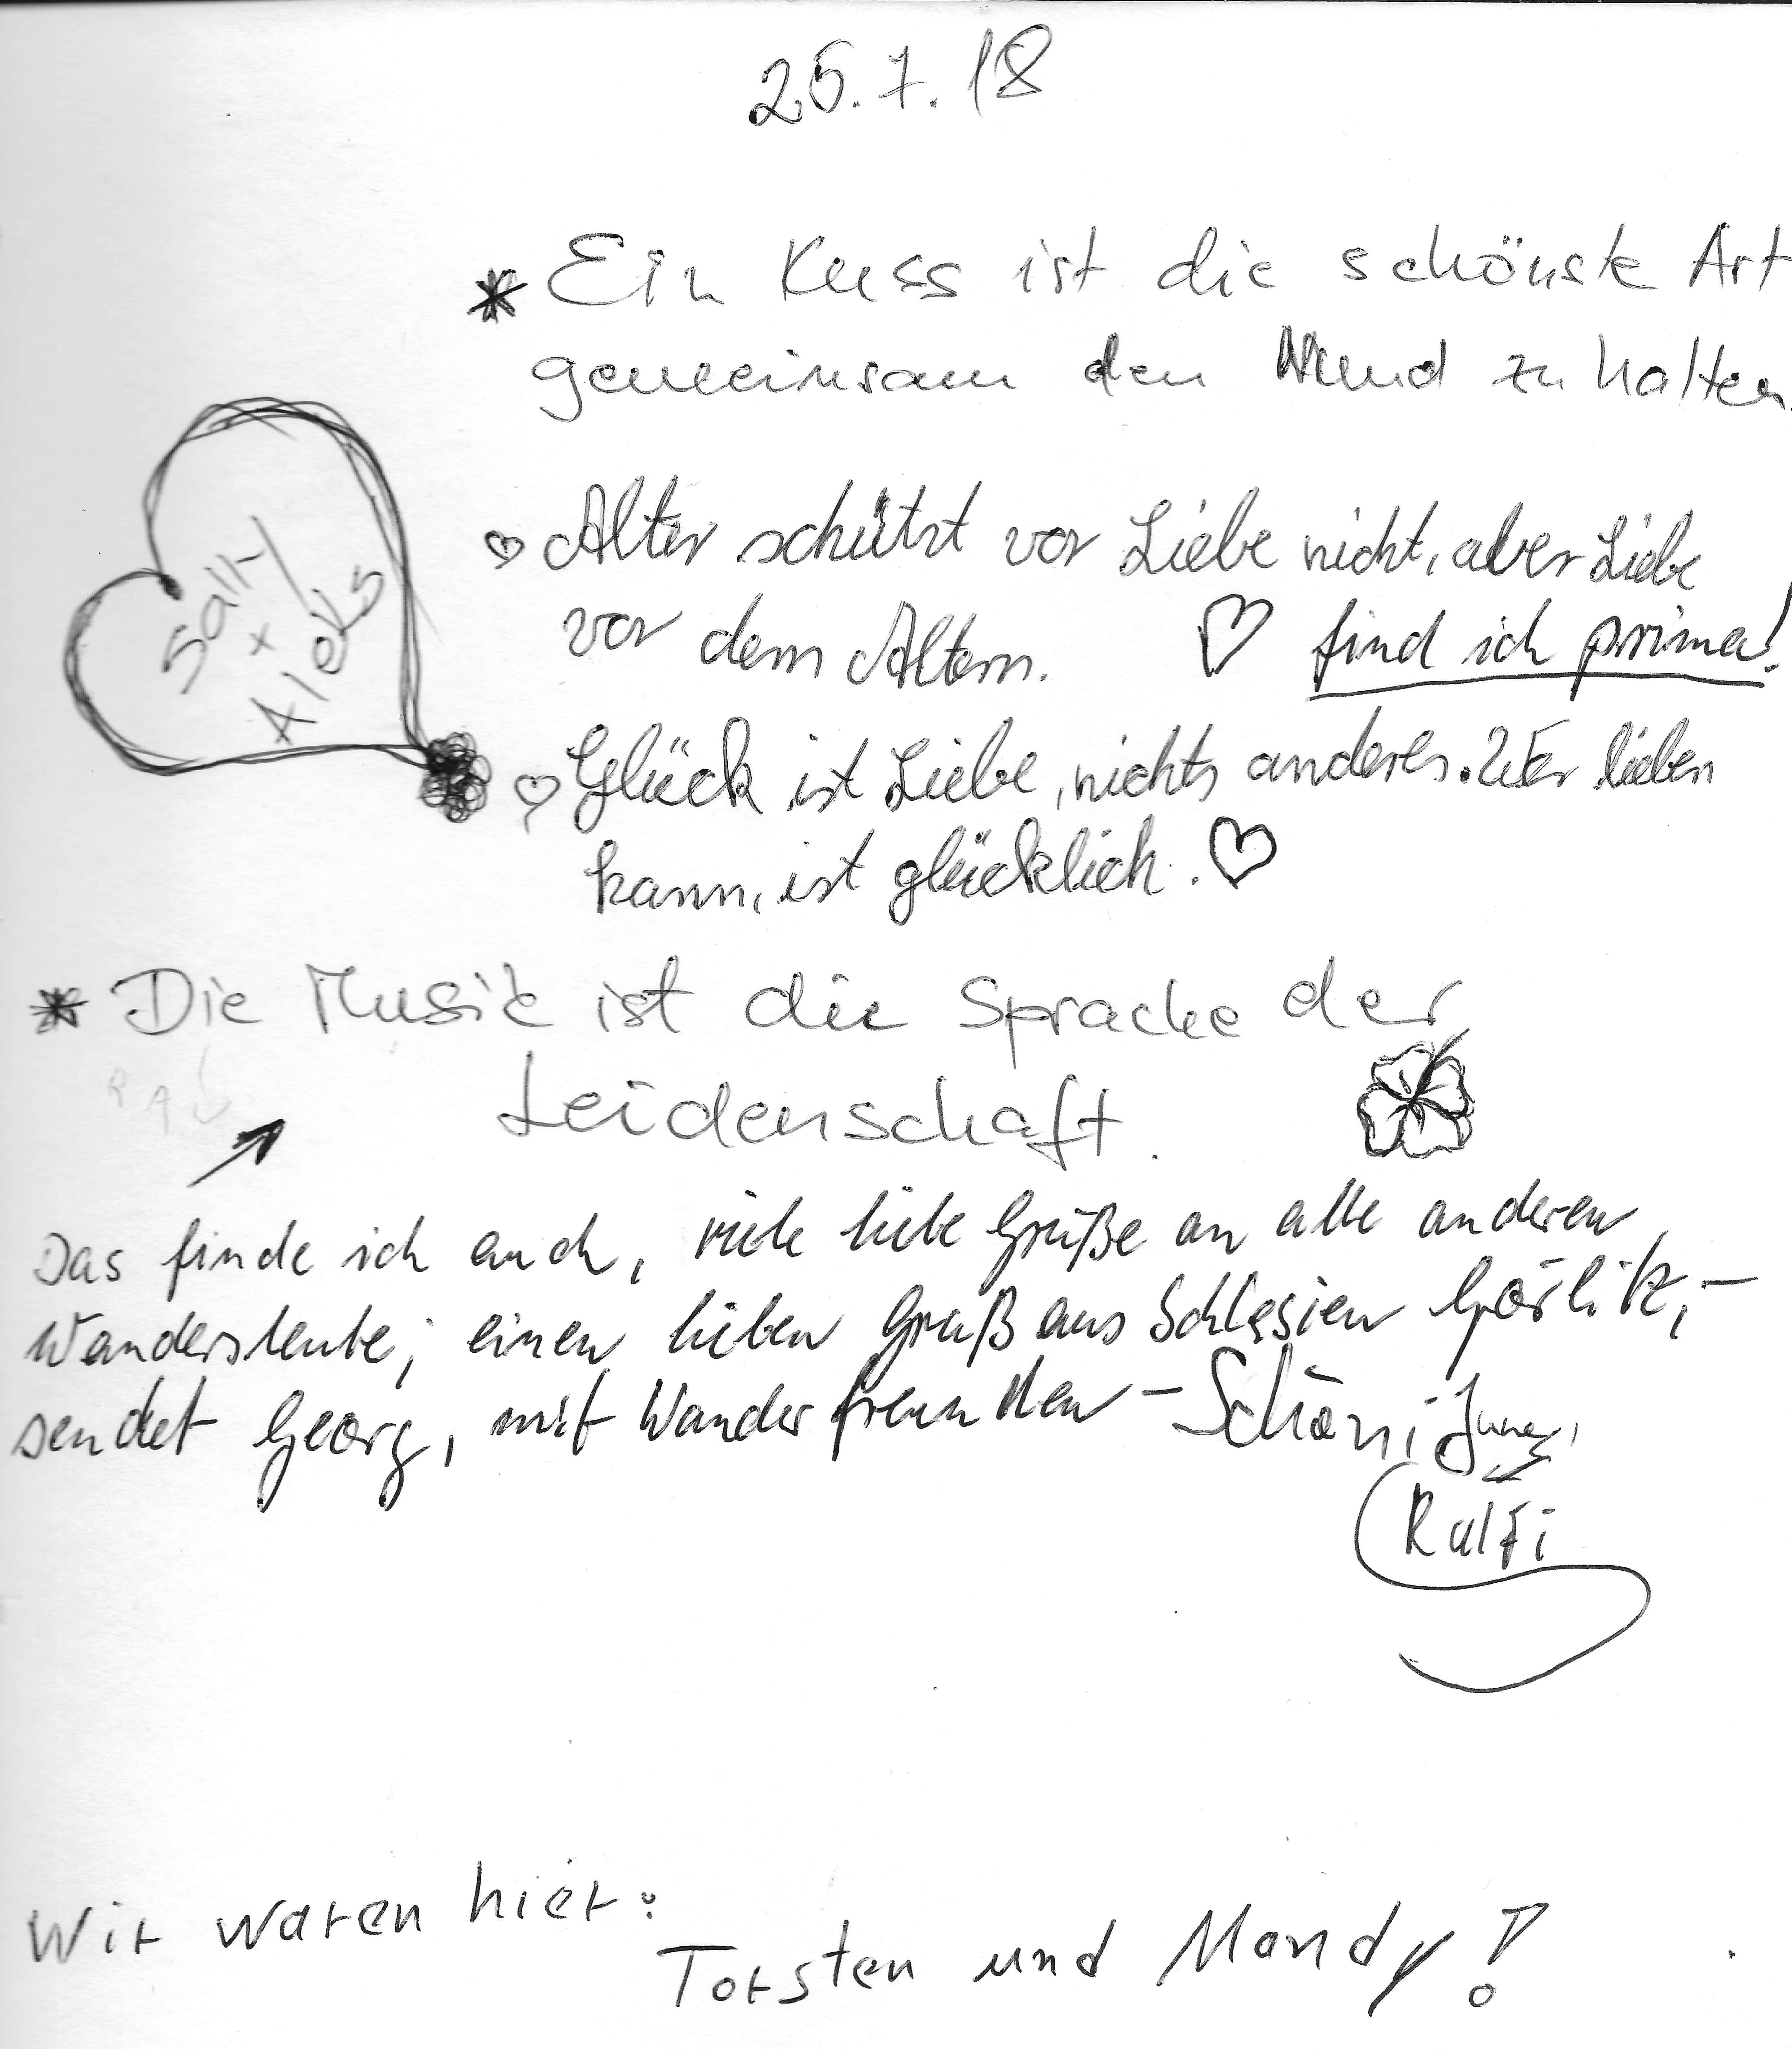 25.7.18
* Ein Kuss ist die schönste Art
gemeinsam den Mund zu halten.
Sally
+
Aleks
♡ Alter schützt vor Liebe nicht, aber Liebe
vor dem Altern. ♡ find ich prima!
♡ Glück ist Liebe, nichts anderes. Wer lieben
kann, ist glücklich. ♡
* Die Musik ist die Sprache der
Leidenschaft.
Das finde ich auch, viele liebe Grüße an alle anderen
Wandersleute; einen lieben Gruß aus Schlesien Görlitz,-
sendet Georg, mit Wanderfreunden -
Ralfi
Wir waren hier:
Torsten und Mandy!